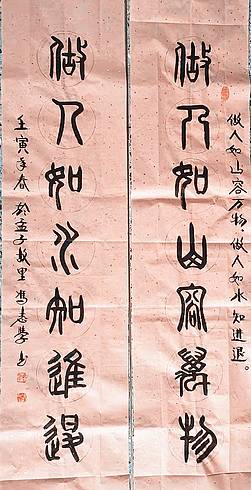 做人如山容万物做人如水知進退。
做人如山容萬物
做人如水知進退
壬寅年春於孟子故里馮志學書